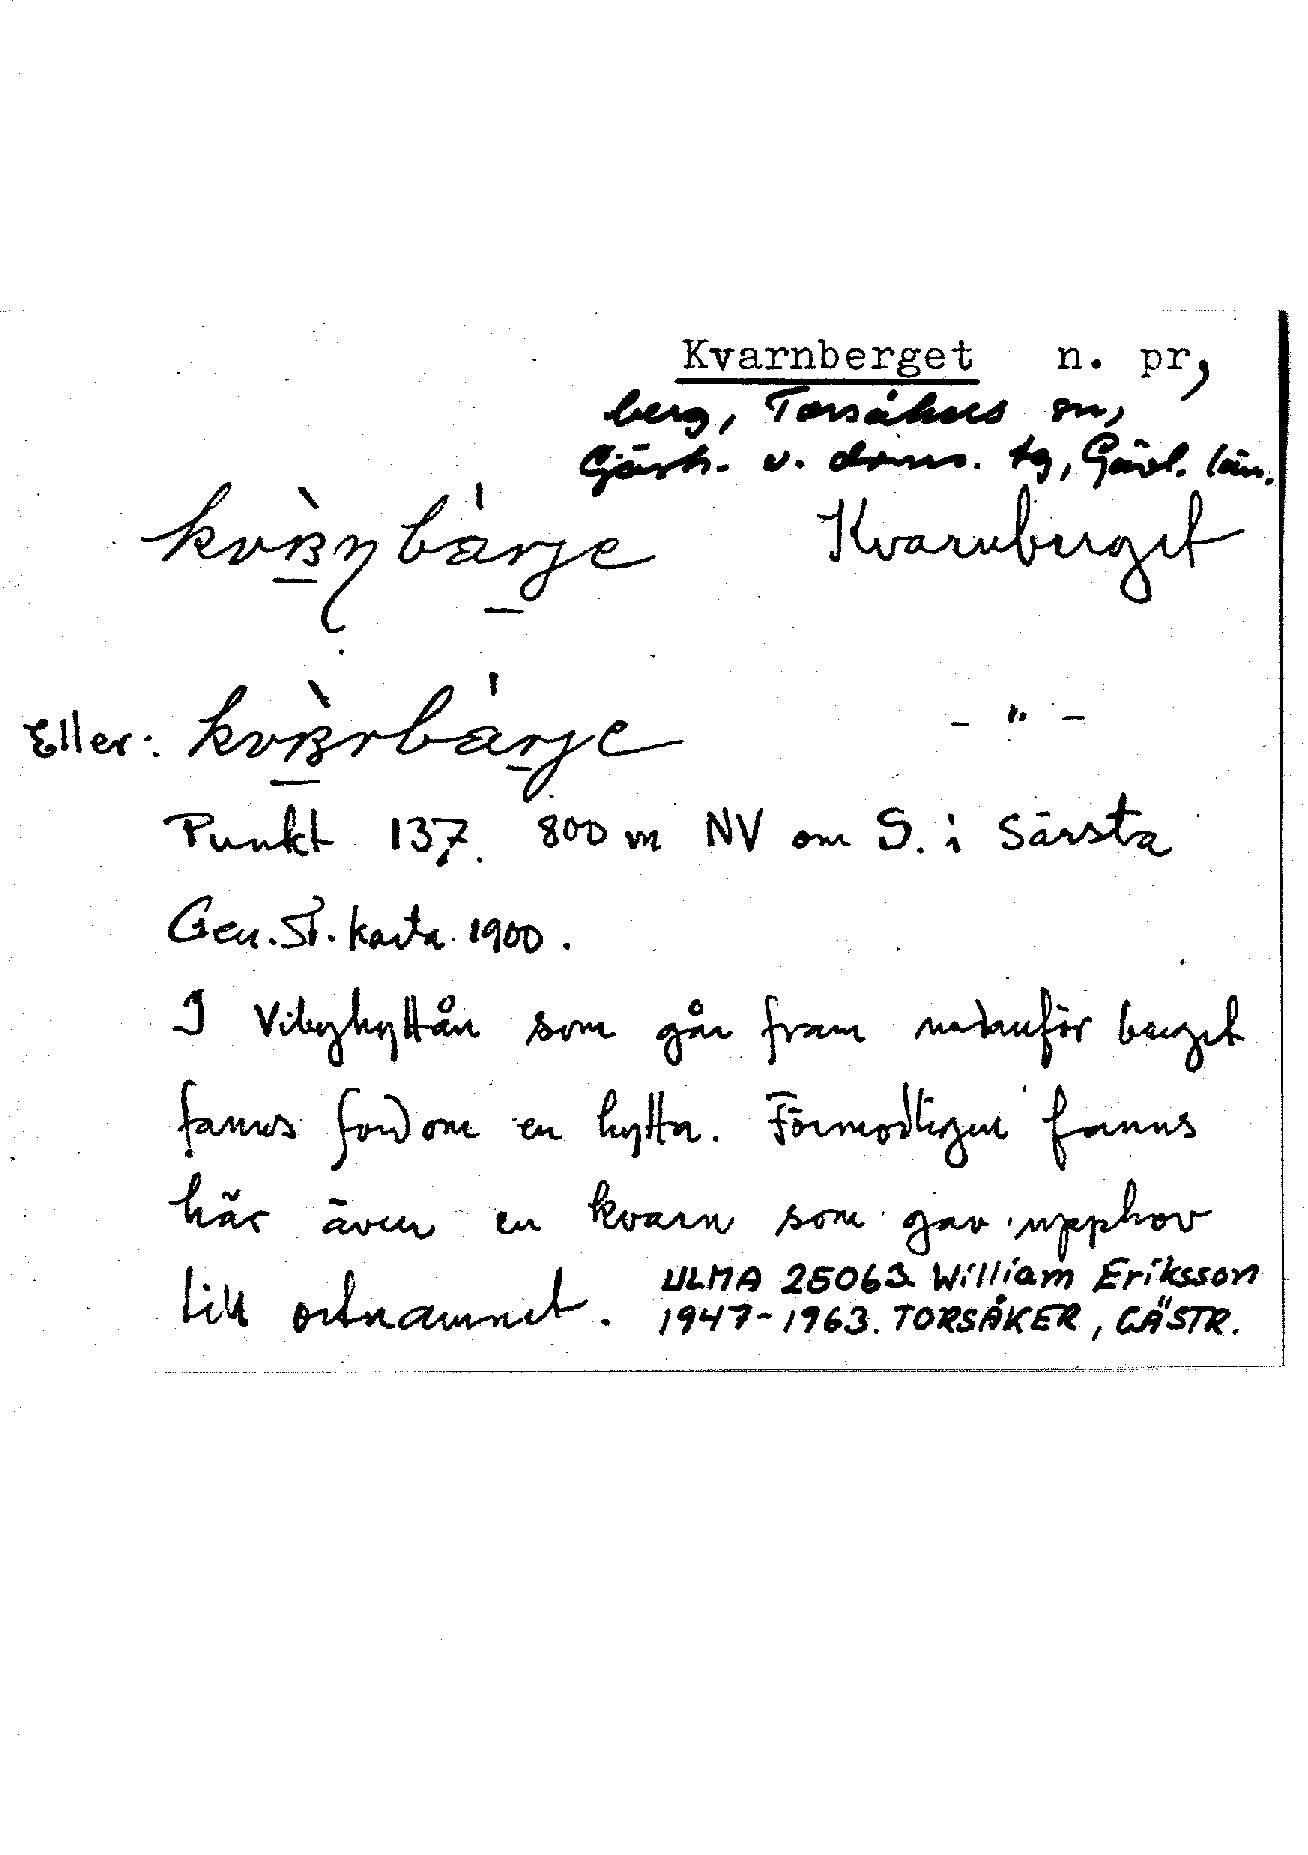 Kvarnberget n. pr,
berg, Torsåkers sn,
Gästr. v. doms. tg, Gävl. län.
Kvarnberget
Eller: - " -
Punkt 137. 800 m NV om S. i Särsta
Gen. St. karta 1900.
I Vibyhyttån som går fram nedanför berget
fanns fordom en hytta. Förmodligen fanns
här även en kvarn som gav upphov
till ortnamnet.
ULMA 25063 William Eriksson
1947-1963. TORSÅKER, GÄSTR.